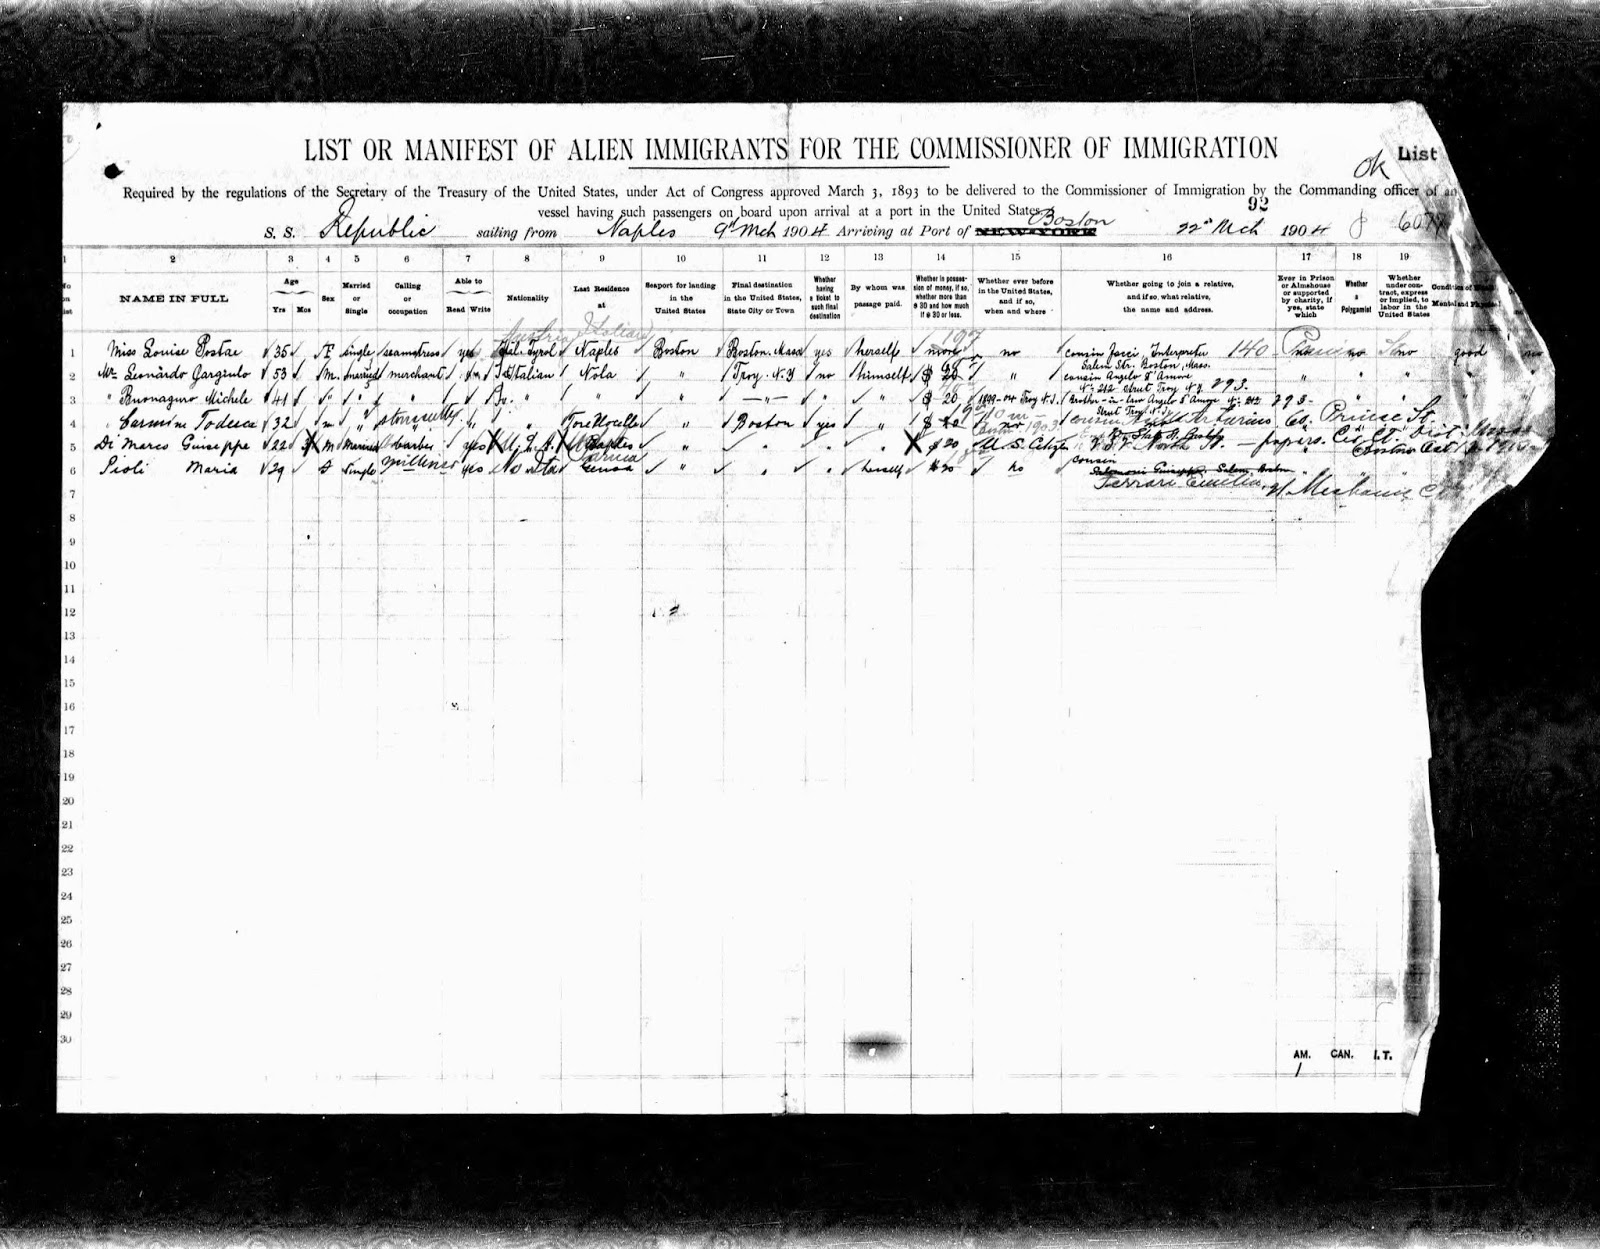 LIST OR MANIFEST OF ALIEN IMMIGRANTS FOR THE COMMISSIONER OF IMMIGRATION
OK List
Required by the regulations of the Secretary of the Treasury of the United States, under Act of Congress approved March 3, 1893 to be delivered to the Commissioner of Immigration by the Commanding officer of an
vessel having such passengers on board upon arrival at a port in the United States.
92
S. S. Republic sailing from Naples 9th Mch 1904 Arriving at Port of NEW-YORK Boston 22d Mch 1904 8
1 2 3 4 5 6 7 8 9 10 11 12 13 14 15 16 17 18 19
NAME IN FULL
Age
Yrs Mos
Sex
Married or Single
Calling or occupation
Able to
Read Write
Nationality
Last Residence at
Seaport for landing in the United States
Final destination in the United States, State City or Town
Whether having a ticket to such final destination
By whom was passage paid.
Whether in possession of money, if so, whether more than $ 30 and how much if $ 30 or less.
Whether ever before in the United States, and if so, when and where
Whether going to join a relative, and if so, what relative, the name and address.
Ever in Prison or Almshouse or supported by charity, if yes, state which
Whether a Polygamist
Whether under contract, express or implied, to labor in the United States
Condition of Mental and Physical
Austrian Italian
1 Miss Louise Postae 35 F single seamstress yes Ital. Tyrol Naples Boston Boston. Mass yes herself more no cousin Jacci, Interpreter 140 Prince no no good no
Salem Str. Boston, Mass.
2 Mr Leonardo Gargiulo 53 m. married merchant Italian Nola " Troy. N.Y no himself $ 20 " cousin Angelo D'Amore
No 212 street Troy N.Y. 293.
3 " Buonaguro Michele 41 " " " " " " $ 20 1899-04 Troy N.Y. Brother-in-law Angelo D'Amore No 212 293-
Street Troy N.Y.
4 " Carmine Todesca 32 m " stonecutter " Torenocelle " Boston yes " $ 10 no cousin Co. Prince St.
1903
5 Di Marco Guiseppe 22 3 M Married barber yes U. S. A. Naples " " " " $ 20 U. S. Citizen North St. — papers. Cir. Ct. Dist. Mass
Boston Oct
6 Pioli Maria 29 f Single milliner yes North Ital Genoa " " " herself $ 20 no cousin
Parma
Salomoni Guiseppe Salem, Boston
Ferrari Emilia, 21 Mechanic Ct
7
8
9
10
11
12
13
14
15
16
17
18
19
20
21
22
23
24
25
26
27
28
29
30
AM. CAN. I.T.
1